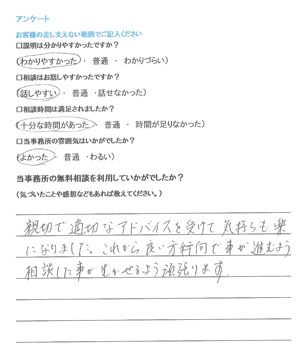 アンケート
お客様の差し支えない範囲でご記入ください
□説明は分かりやすかったですか？
わかりやすかった ・ 普通 ・ わかりづらい）
□相談はお話しやすかったですか？
話しやすい ・ 普通 ・話せなかった）
□相談時間は満足されましたか？
十分な時間があった ・ 普通 ・ 時間が足りなかった）
□当事務所の雰囲気はいかがでしたか？
よかった ・ 普通 ・わるい）
当事務所の無料相談を利用していかがでしたか？
（気づいたことや感想などもあれば教えてください。）
親切で適切なアドバイスを受けて 気持ちも楽
になりました。これから良い方向で事が進むよう
相談した事が生かせるよう頑張ります。